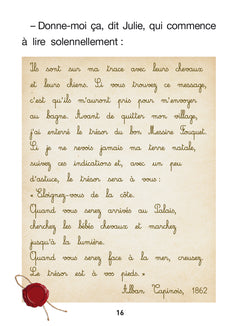 – Donne-moi ça, dit Julie, qui commence
à lire solennellement :
Ils sont sur ma trace avec leurs chevaux
et leurs chiens. Si vous trouvez ce message,
c'est qu'ils m'auront pris pour m'envoyer
au bagne. Avant de quitter mon village,
j'ai enterré le trésor du bon Messire Fouquet.
Si je ne revois jamais ma terre natale,
suivez ces indications et, avec un peu
d'astuce, le trésor sera à vous :
« Éloignez-vous de la côte.
Quand vous serez arrivés au Palais,
cherchez les bébés chevaux et marchez
jusqu'à la lumière.
Quand vous serez face à la mer, creusez.
Le trésor est à vos pieds. »
Alban Tapinois, 1662
16